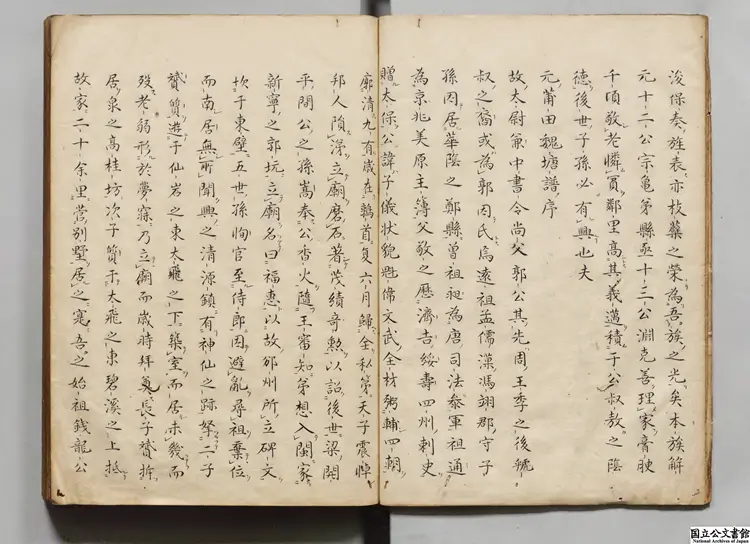 浚保奏旌表亦枝葉之榮為吾族之光矣本族解
元十二公宗亀第縣丞十三公淵克善理家膏腴
千頃敬老憐貧鄰里高其義邁積于公叔敖之陰
德後世子孫必有興也夫
元莆田魏塘譜序
故太尉兼中書令尚父郭公其先周王季之後虢
叔之裔或為郭因氏焉遠祖孟儒漢馮翊郡守子
孫因居華陰之鄭縣曾祖昶為唐司法叅軍祖通
為京兆美原主簿父敬之歷濟吉綏壽四州刺史
贈太保公諱子儀狀貌魁偉文武全材弼輔四朝
廓清九有歲在鶉首夏六月歸全私第天子震悼
邦人隕涕立廟磨石著茂績奇勲以詔後世梁開
平間公之孫嵩奉公香火隨王審知第想入閩家
新寧之郭坑立廟名曰福惠以故邠州所立碑文
坎于東壁五世孫恂官至侍郎因避亂尋祖棄位
而南居無所聞興之清源鎮有神仙之跡拏二子
贇質遊于仙岩之東太飛之下築室而居未幾而
歿老弱形於夢寐乃立廟而歲時拜奠長子贇折
居泉之高桂坊次子質于太飛之東碧溪之上抵
故家二十余里營別墅居之寔吾之始祖錢龍公
国立公文書館
National Archives of Japan